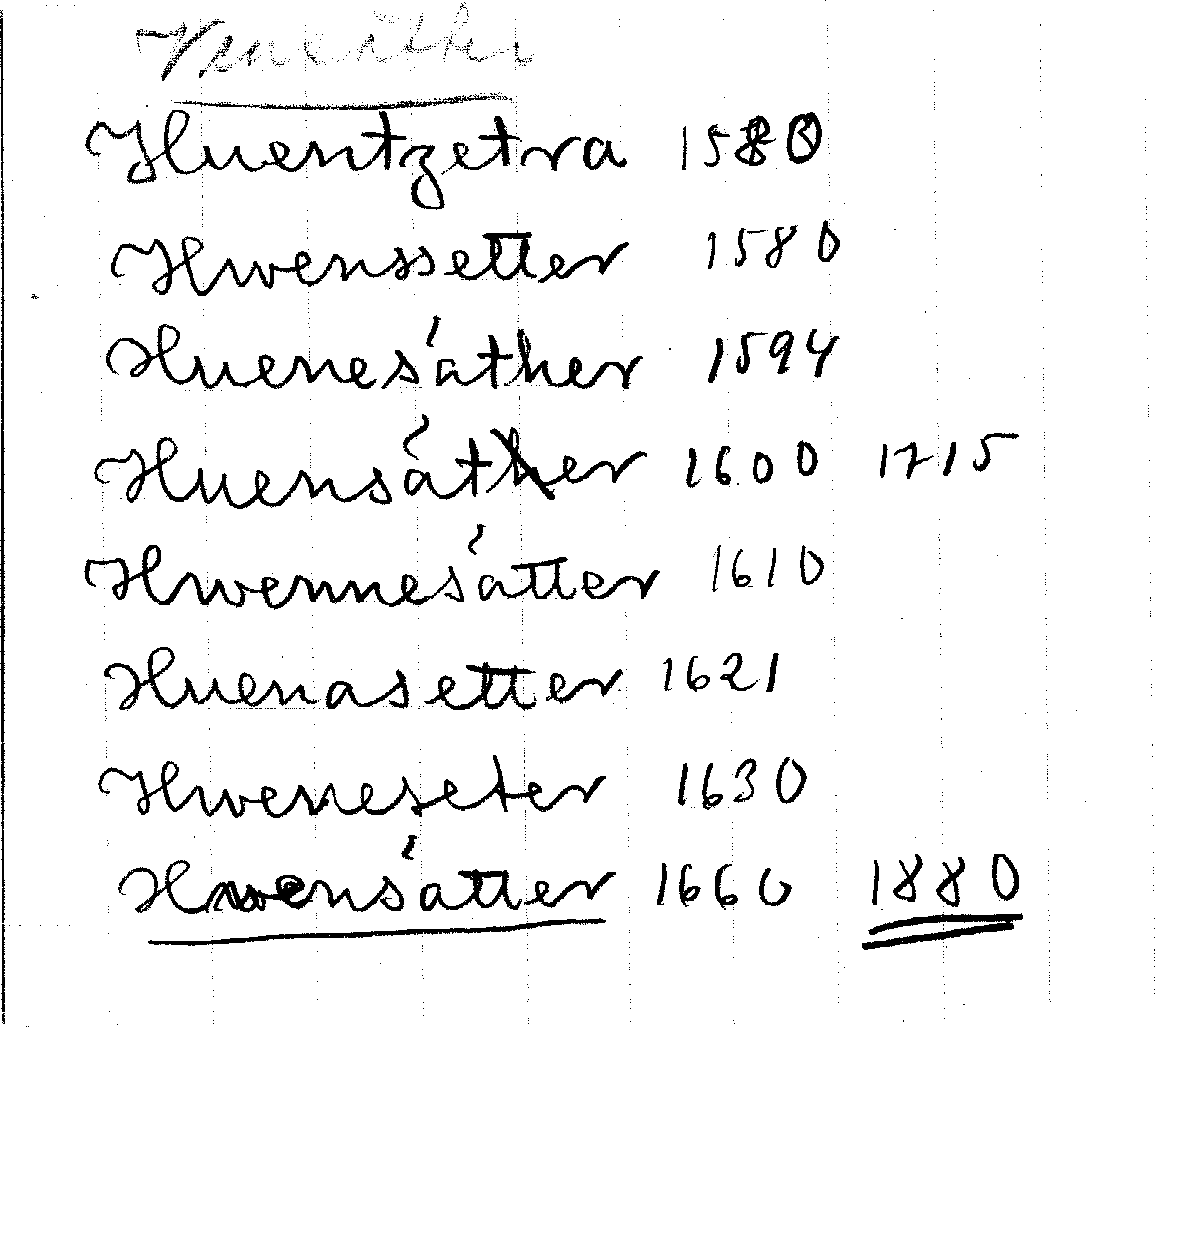 Huentzetra 1580
Hwenssetter 1580
Huenesáther 1594
Huensáther 1600 1715
Hwennesátter 1610
Huenasetter 1621
Hweneseter 1630
Hwensátter 1660 1880